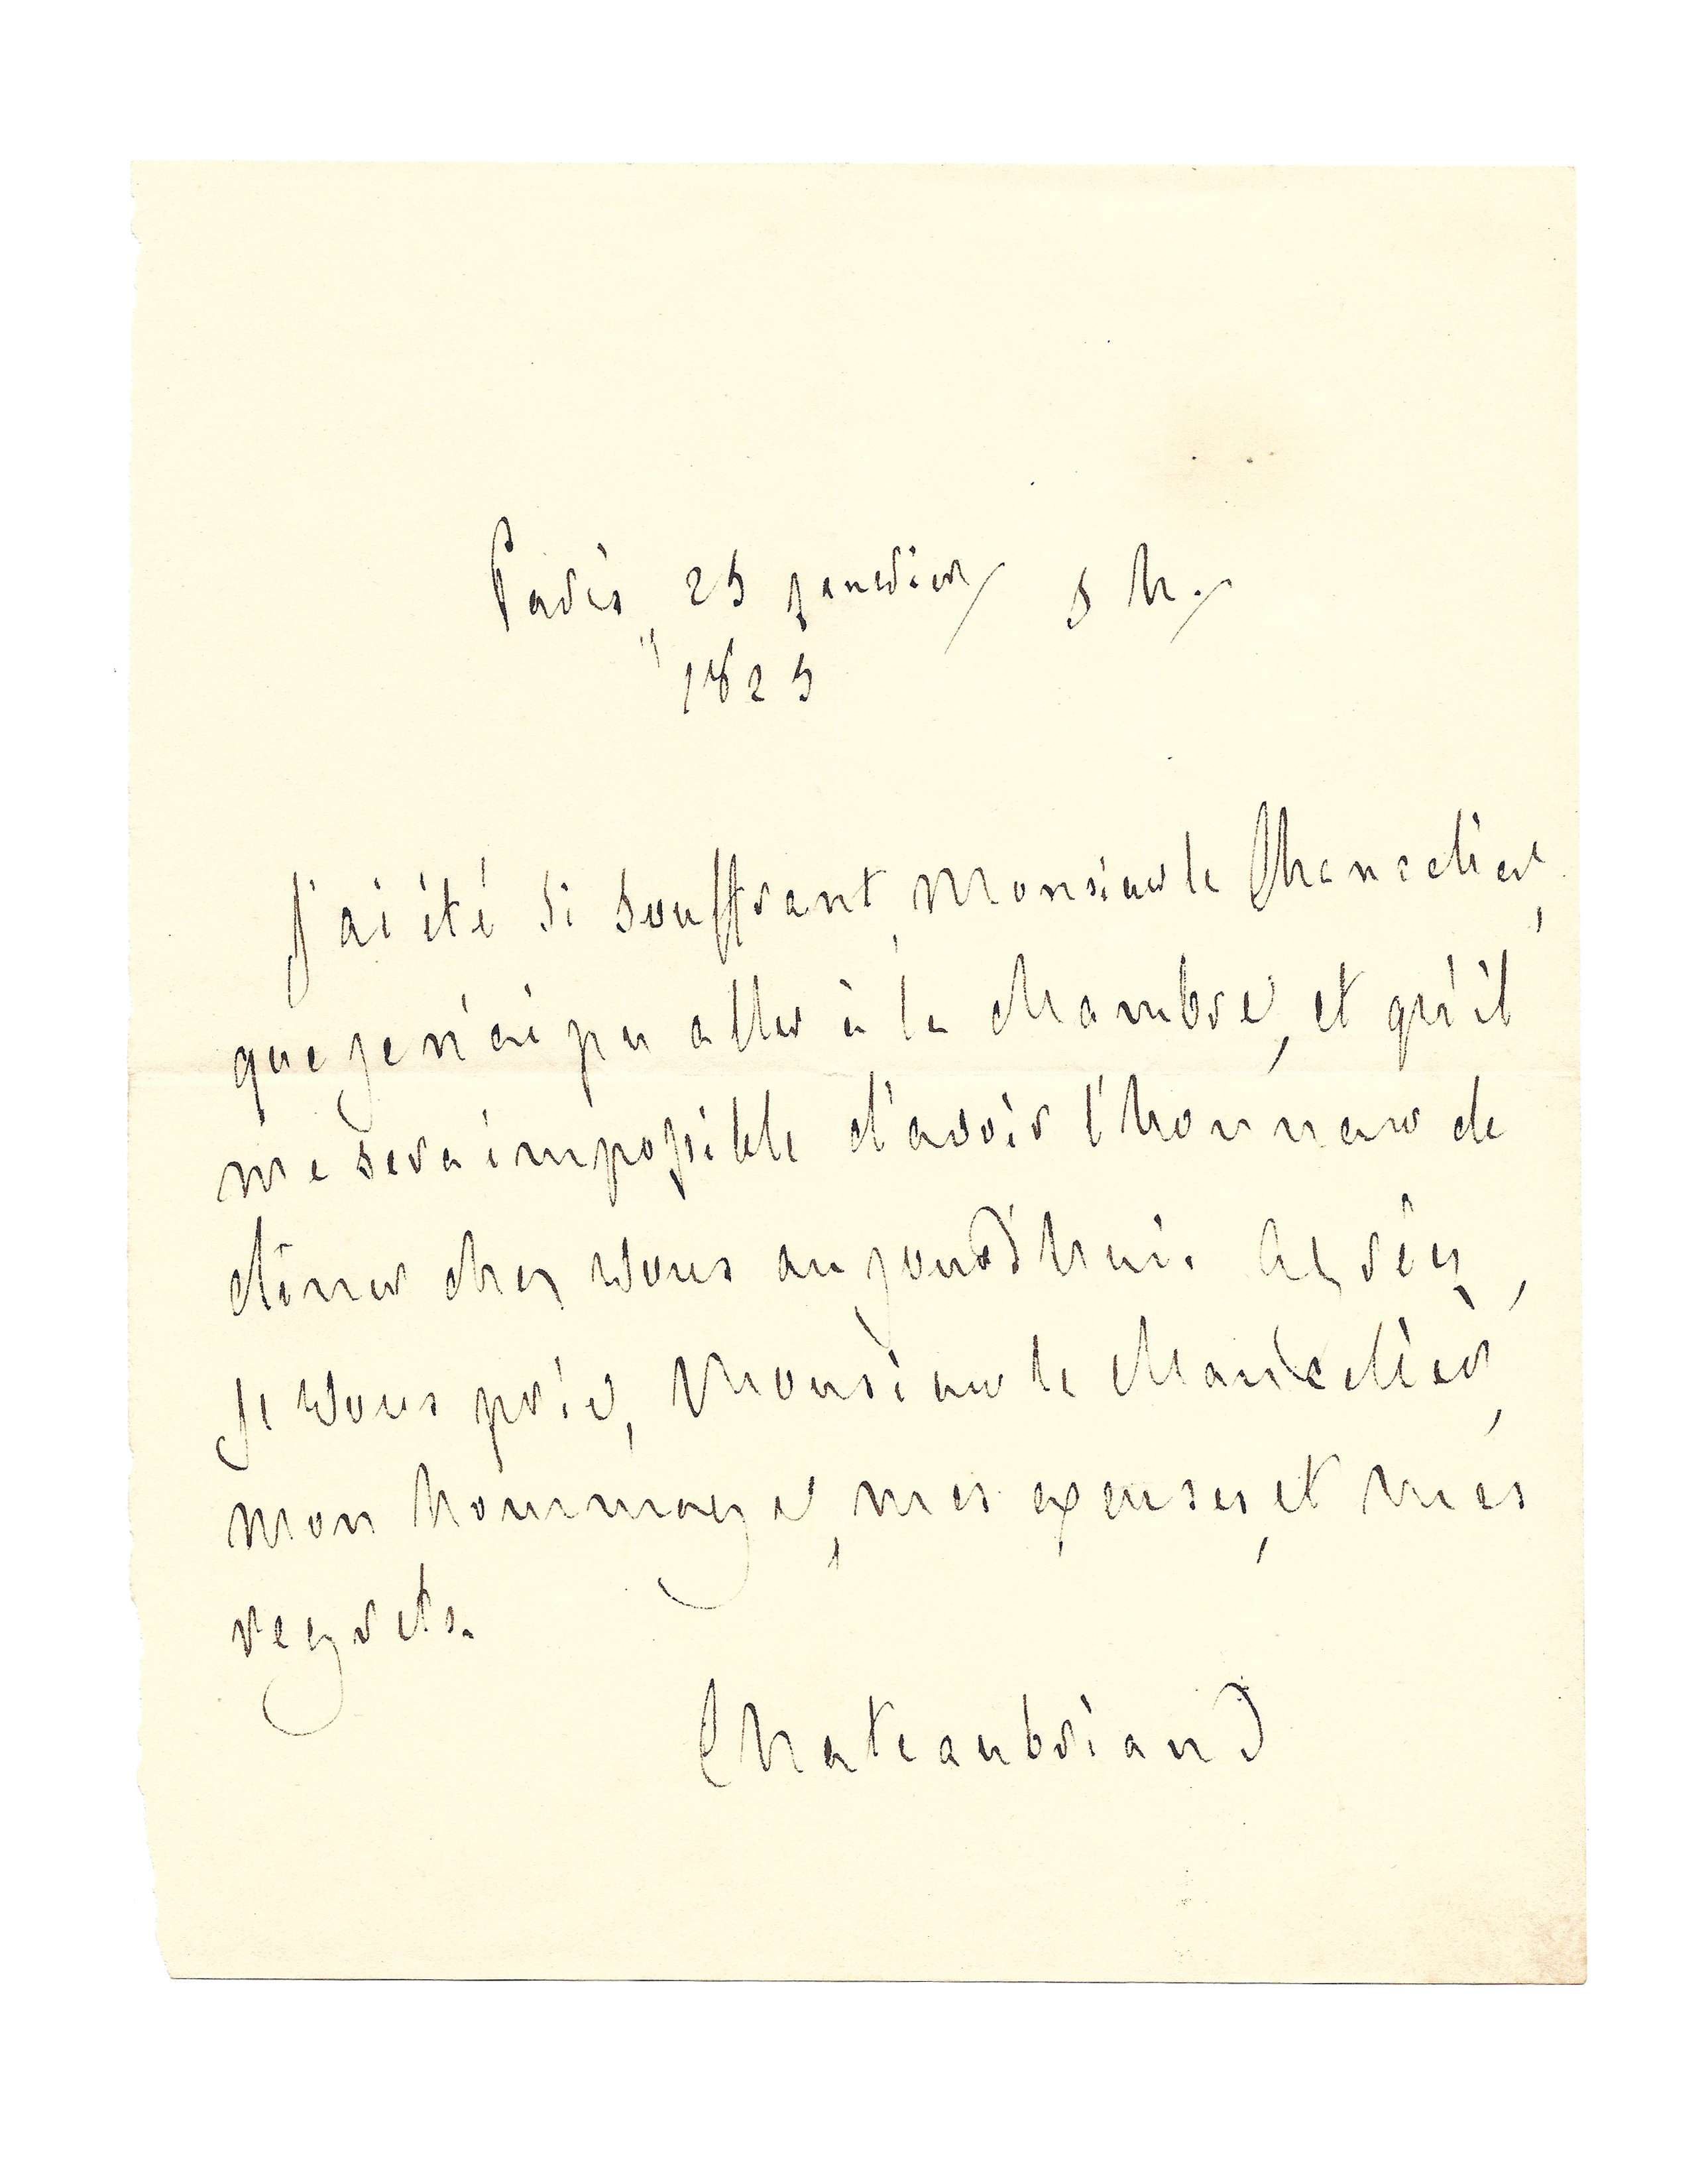 Paris, 25 janvier 5 h.
1825
J'ai été si souffrant, Monsieur le Chancelier,
que je n'ai pu aller à la chambre, et qu'il
me sera impossible d'avoir l'honneur de
dîner chez vous aujourd'hui. Agréez,
je vous prie, Monsieur le chancelier,
mon hommage, mes excuses, et mes
regrets.
Chateaubriand